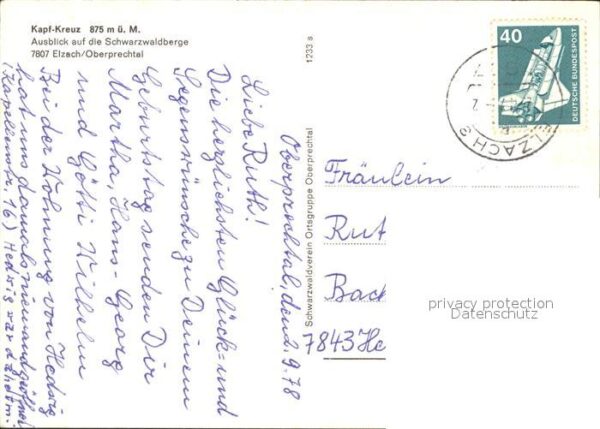 Kapf-Kreuz 875 m ü. M.
Ausblick auf die Schwarzwaldberge
7807 Elzach/Oberprechtal
1233 a
Schwarzwaldverein Ortsgruppe Oberprechtal
Oberprechtal, den 2. 9. 78
Liebe Ruth!
Die herzlichsten Glück- und
Segenswünsche zu Deinem
Geburtstag senden Dir
Martha, Hans-Georg
und Götti Wilhelm
Bei der Wohnung von Hedwig
hat uns damals niemand geöffnet
(Kapellenstr. 16) Hedwig war daheim.
40
DEUTSCHE BUNDESPOST
ELZACH 3
Fräulein
Rut
Bac
7843 He
privacy protection
Datenschutz